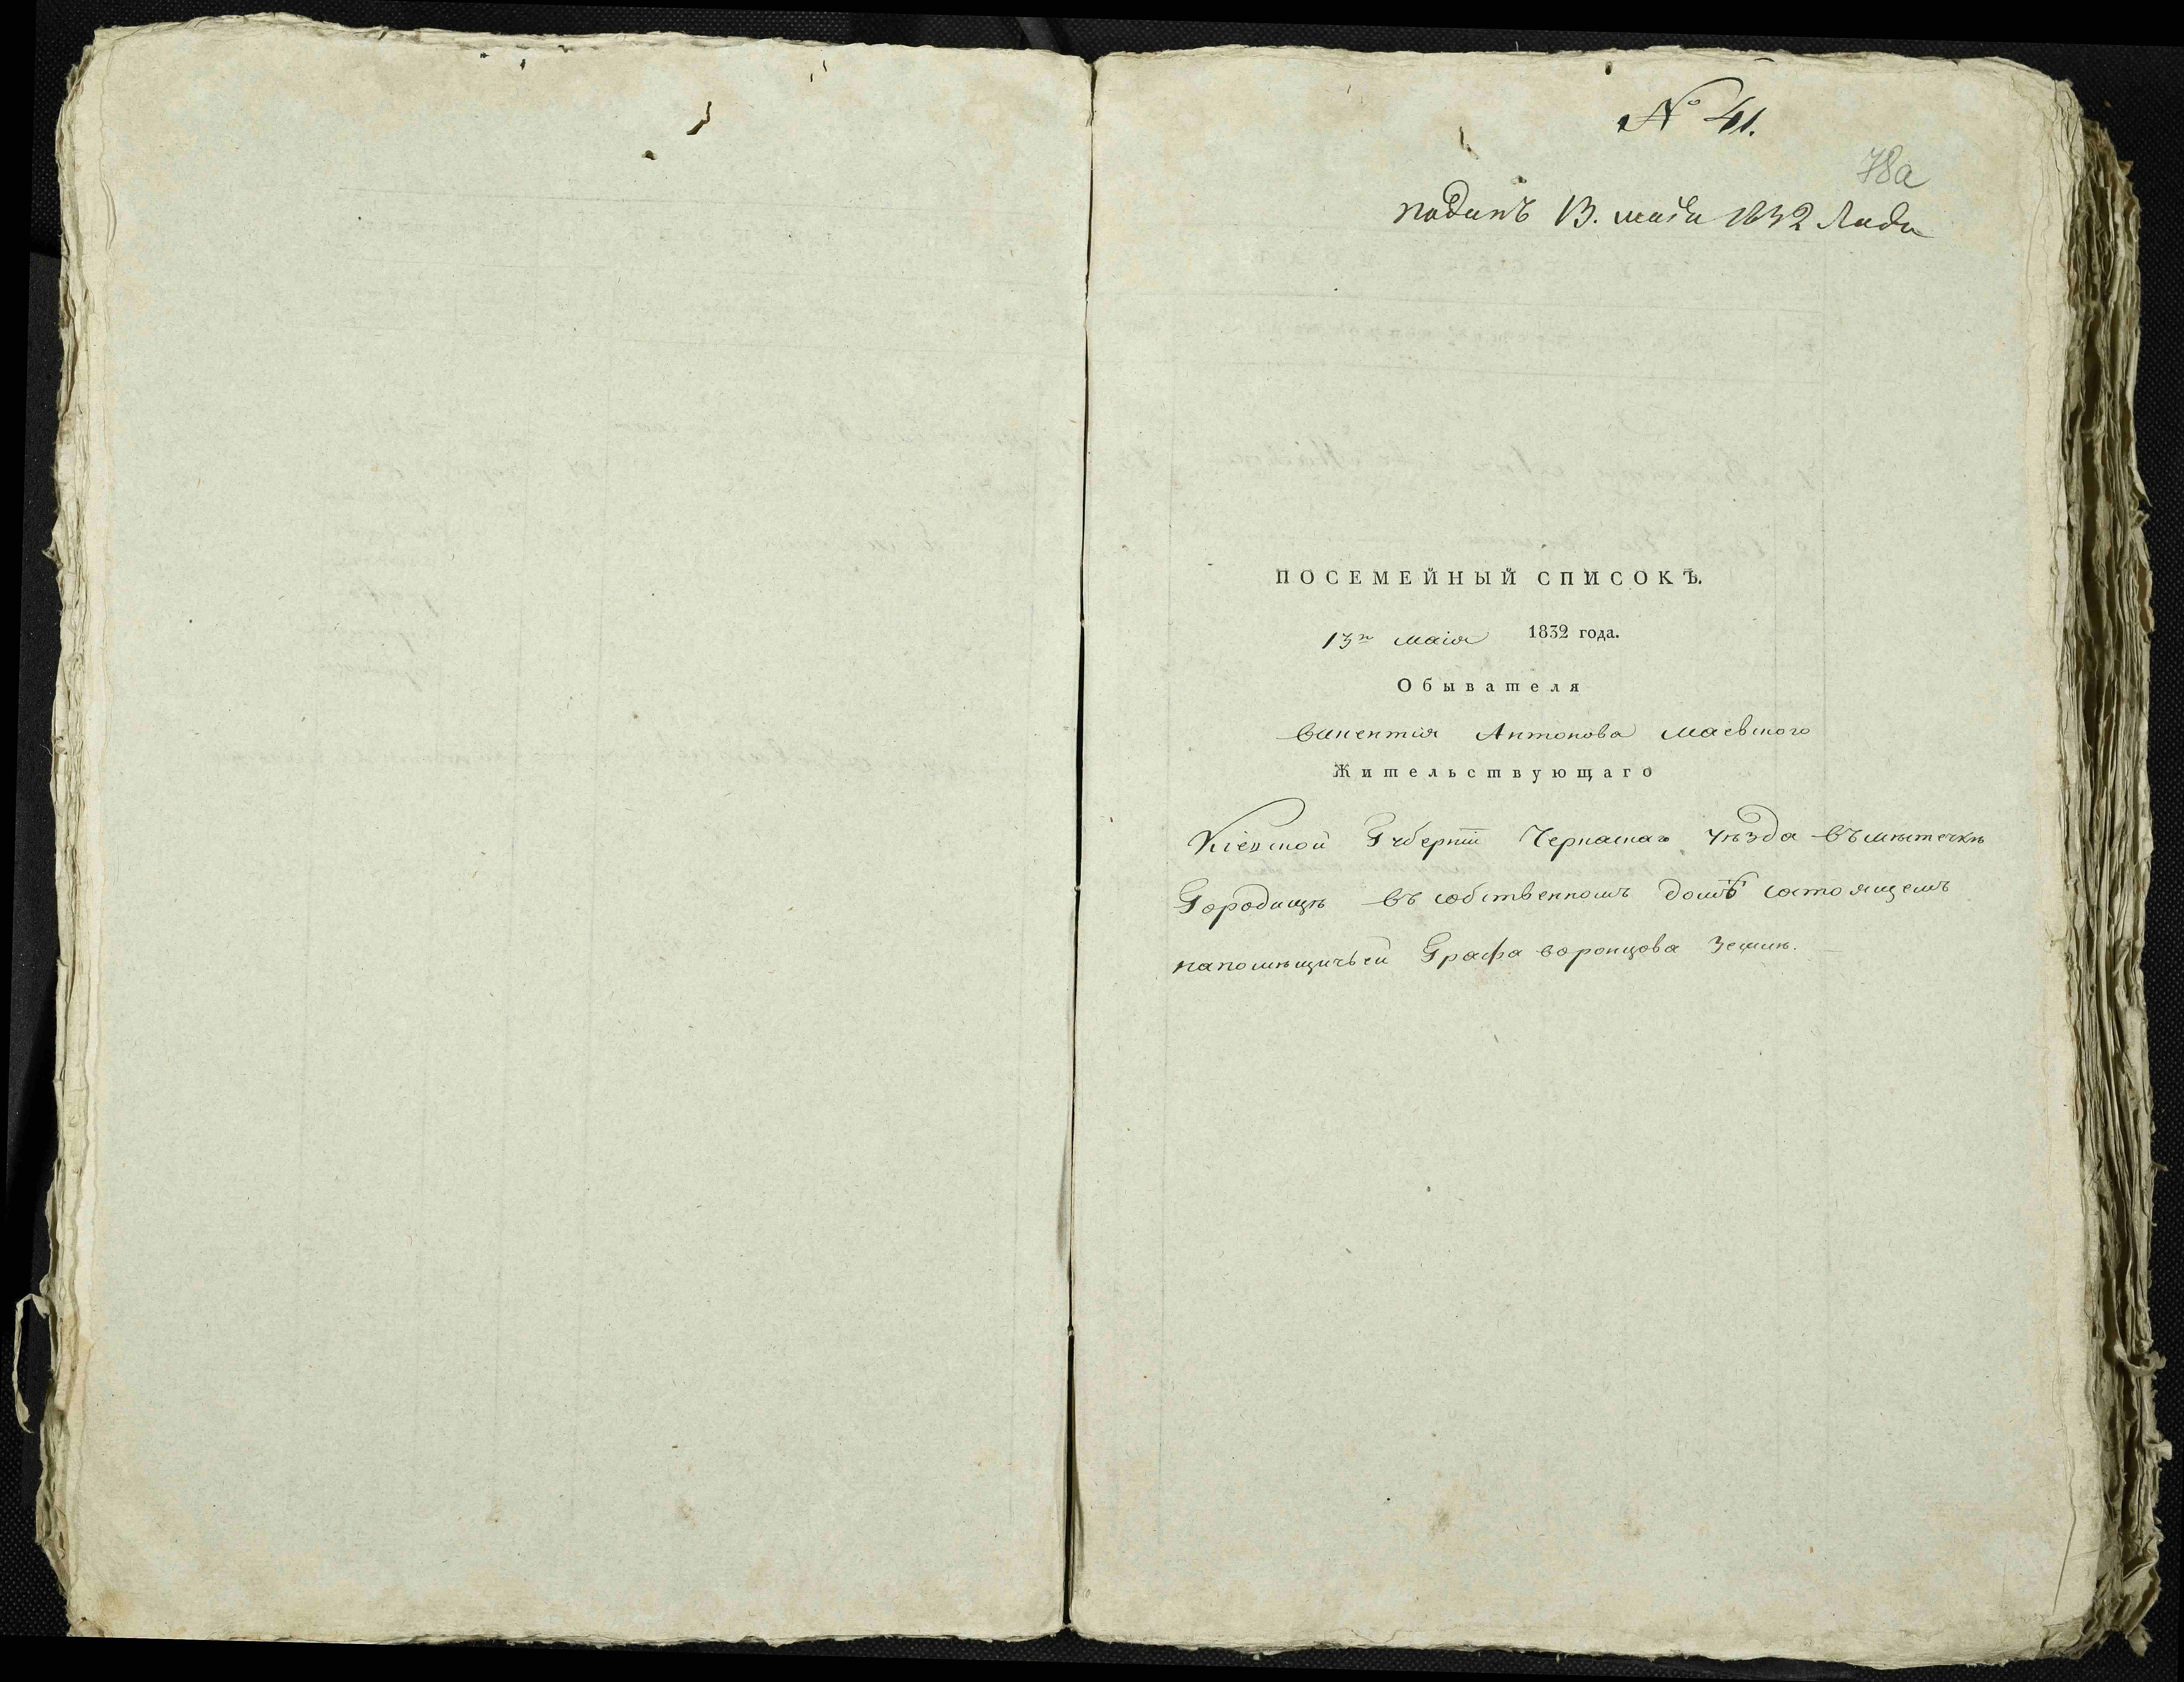 № 41.
78а
поданъ 13. маія 1832 года
ПОСЕМЕЙНЫЙ СПИСОКЪ.
13го маія 1832 года.
Обывателя
Винентія Антонова Маевского
Жительствующаго
Кіевской Губерніи Черкаскаго уѣзда въ мѣстечкѣ
Городищѣ въ собственномъ домѣ состоящемъ
на помѣщичьей Графа Воронцова землѣ.